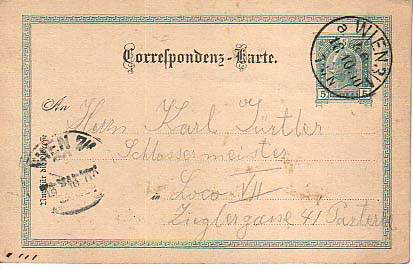 Correspondenz-Karte.
WIEN
5 5
An
Herrn Karl Gürtler
Schlossermeister
in Loco VII
Zieglergasse 41 Parterre
WIEN 7/1